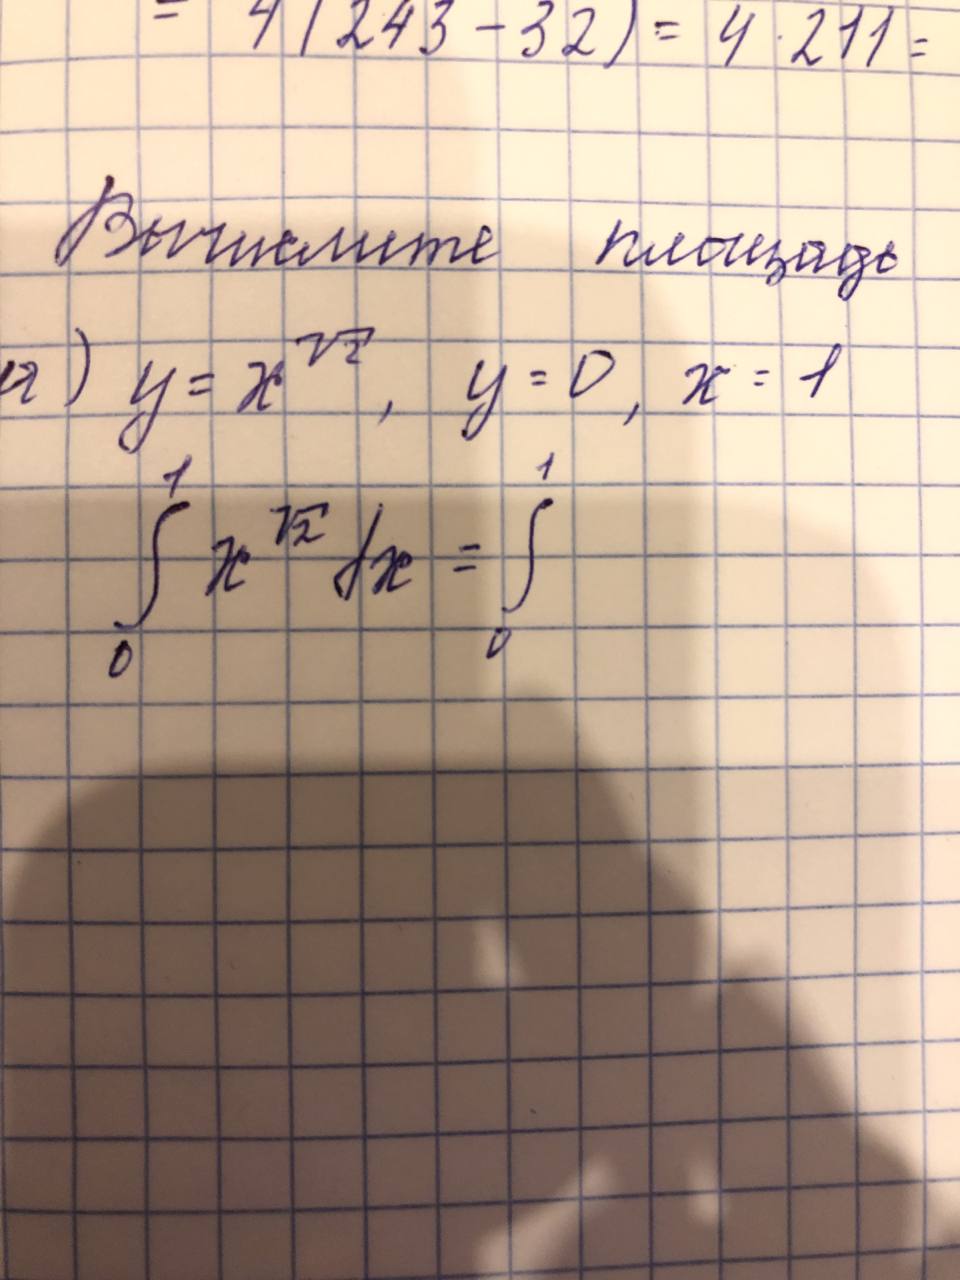 = 4(243 - 32) = 4 · 211 =
Вычислите площадь
а) y = x^√2, y = 0, x = 1
∫₀¹ x^√2 dx = ∫₀¹